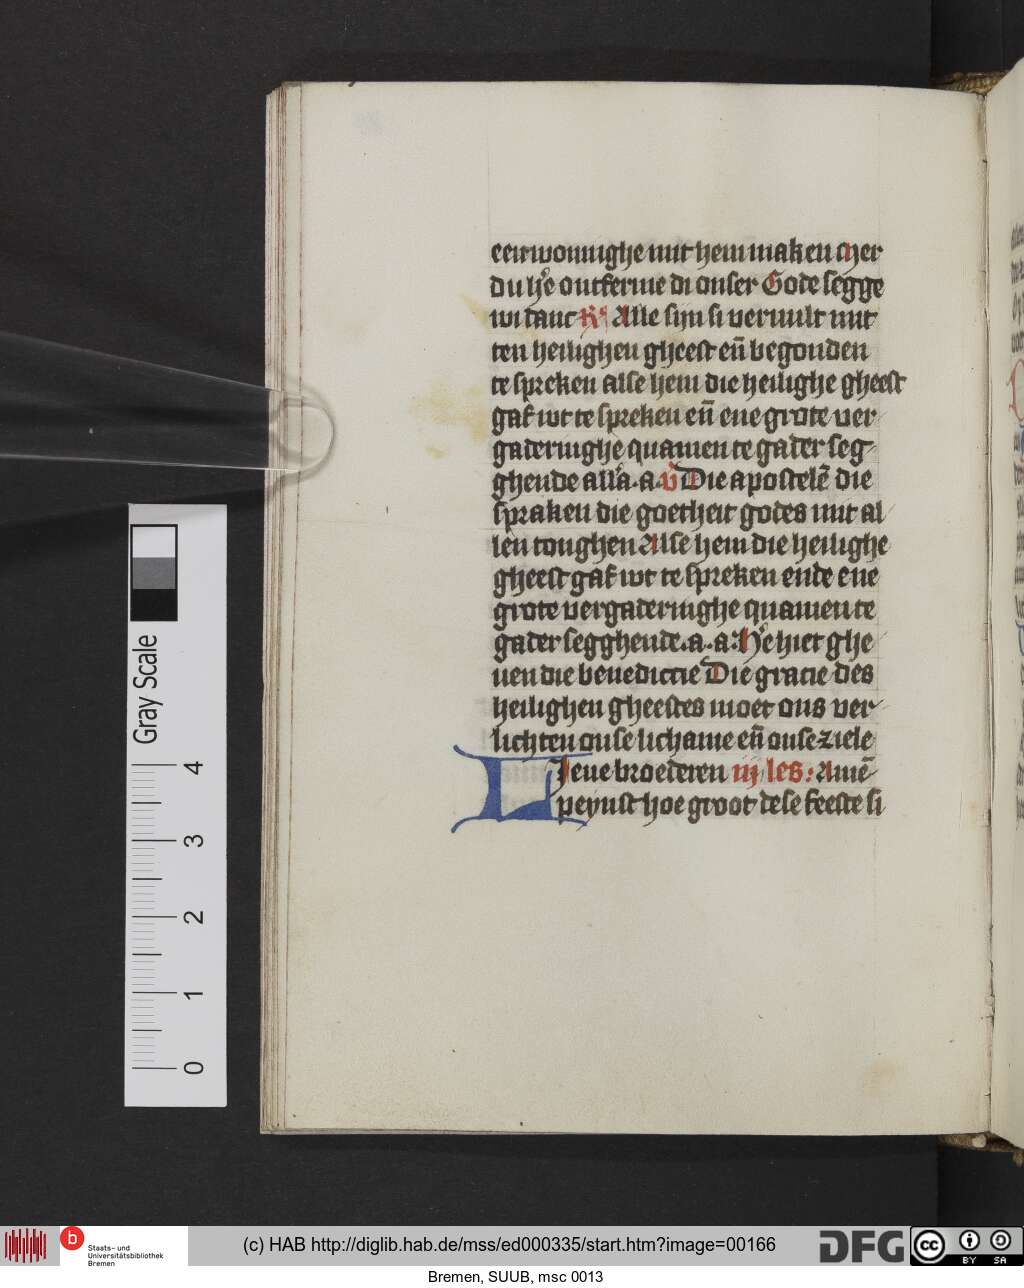 een woninghe mit hem maken Mer
du he᷒ ontferme di onser Gode segge
wi danc R᷒ Alle sijn si vervult mit
ten heilighen gheest en̄ begonden
te spreken alse hem die heilighe gheest
gaf wt te spreken en̄ ene grote ver
gaderinghe quamen te gader seg
ghende all'a. a. v᷒ Die apostelē die
spraken die goetheit godes mit al
len tonghen Alse hem die heilighe
gheest gaf wt te spreken ende ene
grote vergaderinghe quamen te
gader segghende. a. a. He᷒ hiet ghe
uen die benedictie Die gracie des
heilighen gheestes moet ons ver
lichten onse lichame en̄ onse ziele
Lieue broederen iij les: Amē
peynst hoe groot dese feeste si
Gray Scale
4
3
2
1
0
b
Staats- und
Universitätsbibliothek
Bremen
(c) HAB http://diglib.hab.de/mss/ed000335/start.htm?image=00166
DFG
cc
BY SA
Bremen, SUUB, msc 0013